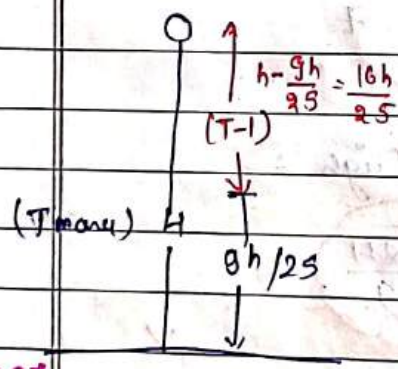 h - 9h/25 = 16h/25
(T-1)
(T manu) H
9h/25